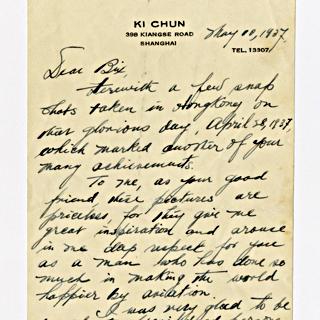 KI CHUN
398 KIANGSE ROAD
SHANGHAI
May 10, 1937.
TEL. 13307
Dear Bix
Herewith a few snap
shots taken in Hongkong on
that glorious day, April 28, 1937,
which marked another of your
many achievements.
To me, as your good
friend, these pictures are
priceless, for they give me
great inspiration and arouse
in me deep respect for you
as a man who has done so
much in making the world
happier by aviation.
I was very glad to be